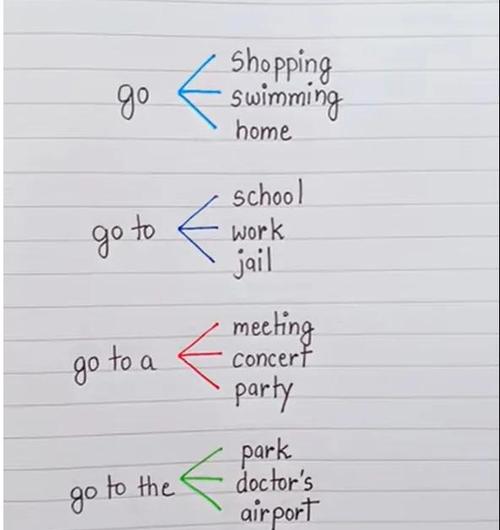 shopping
go swimming
home
school
go to work
jail
meeting
go to a concert
party
park
go to the doctor's
airport